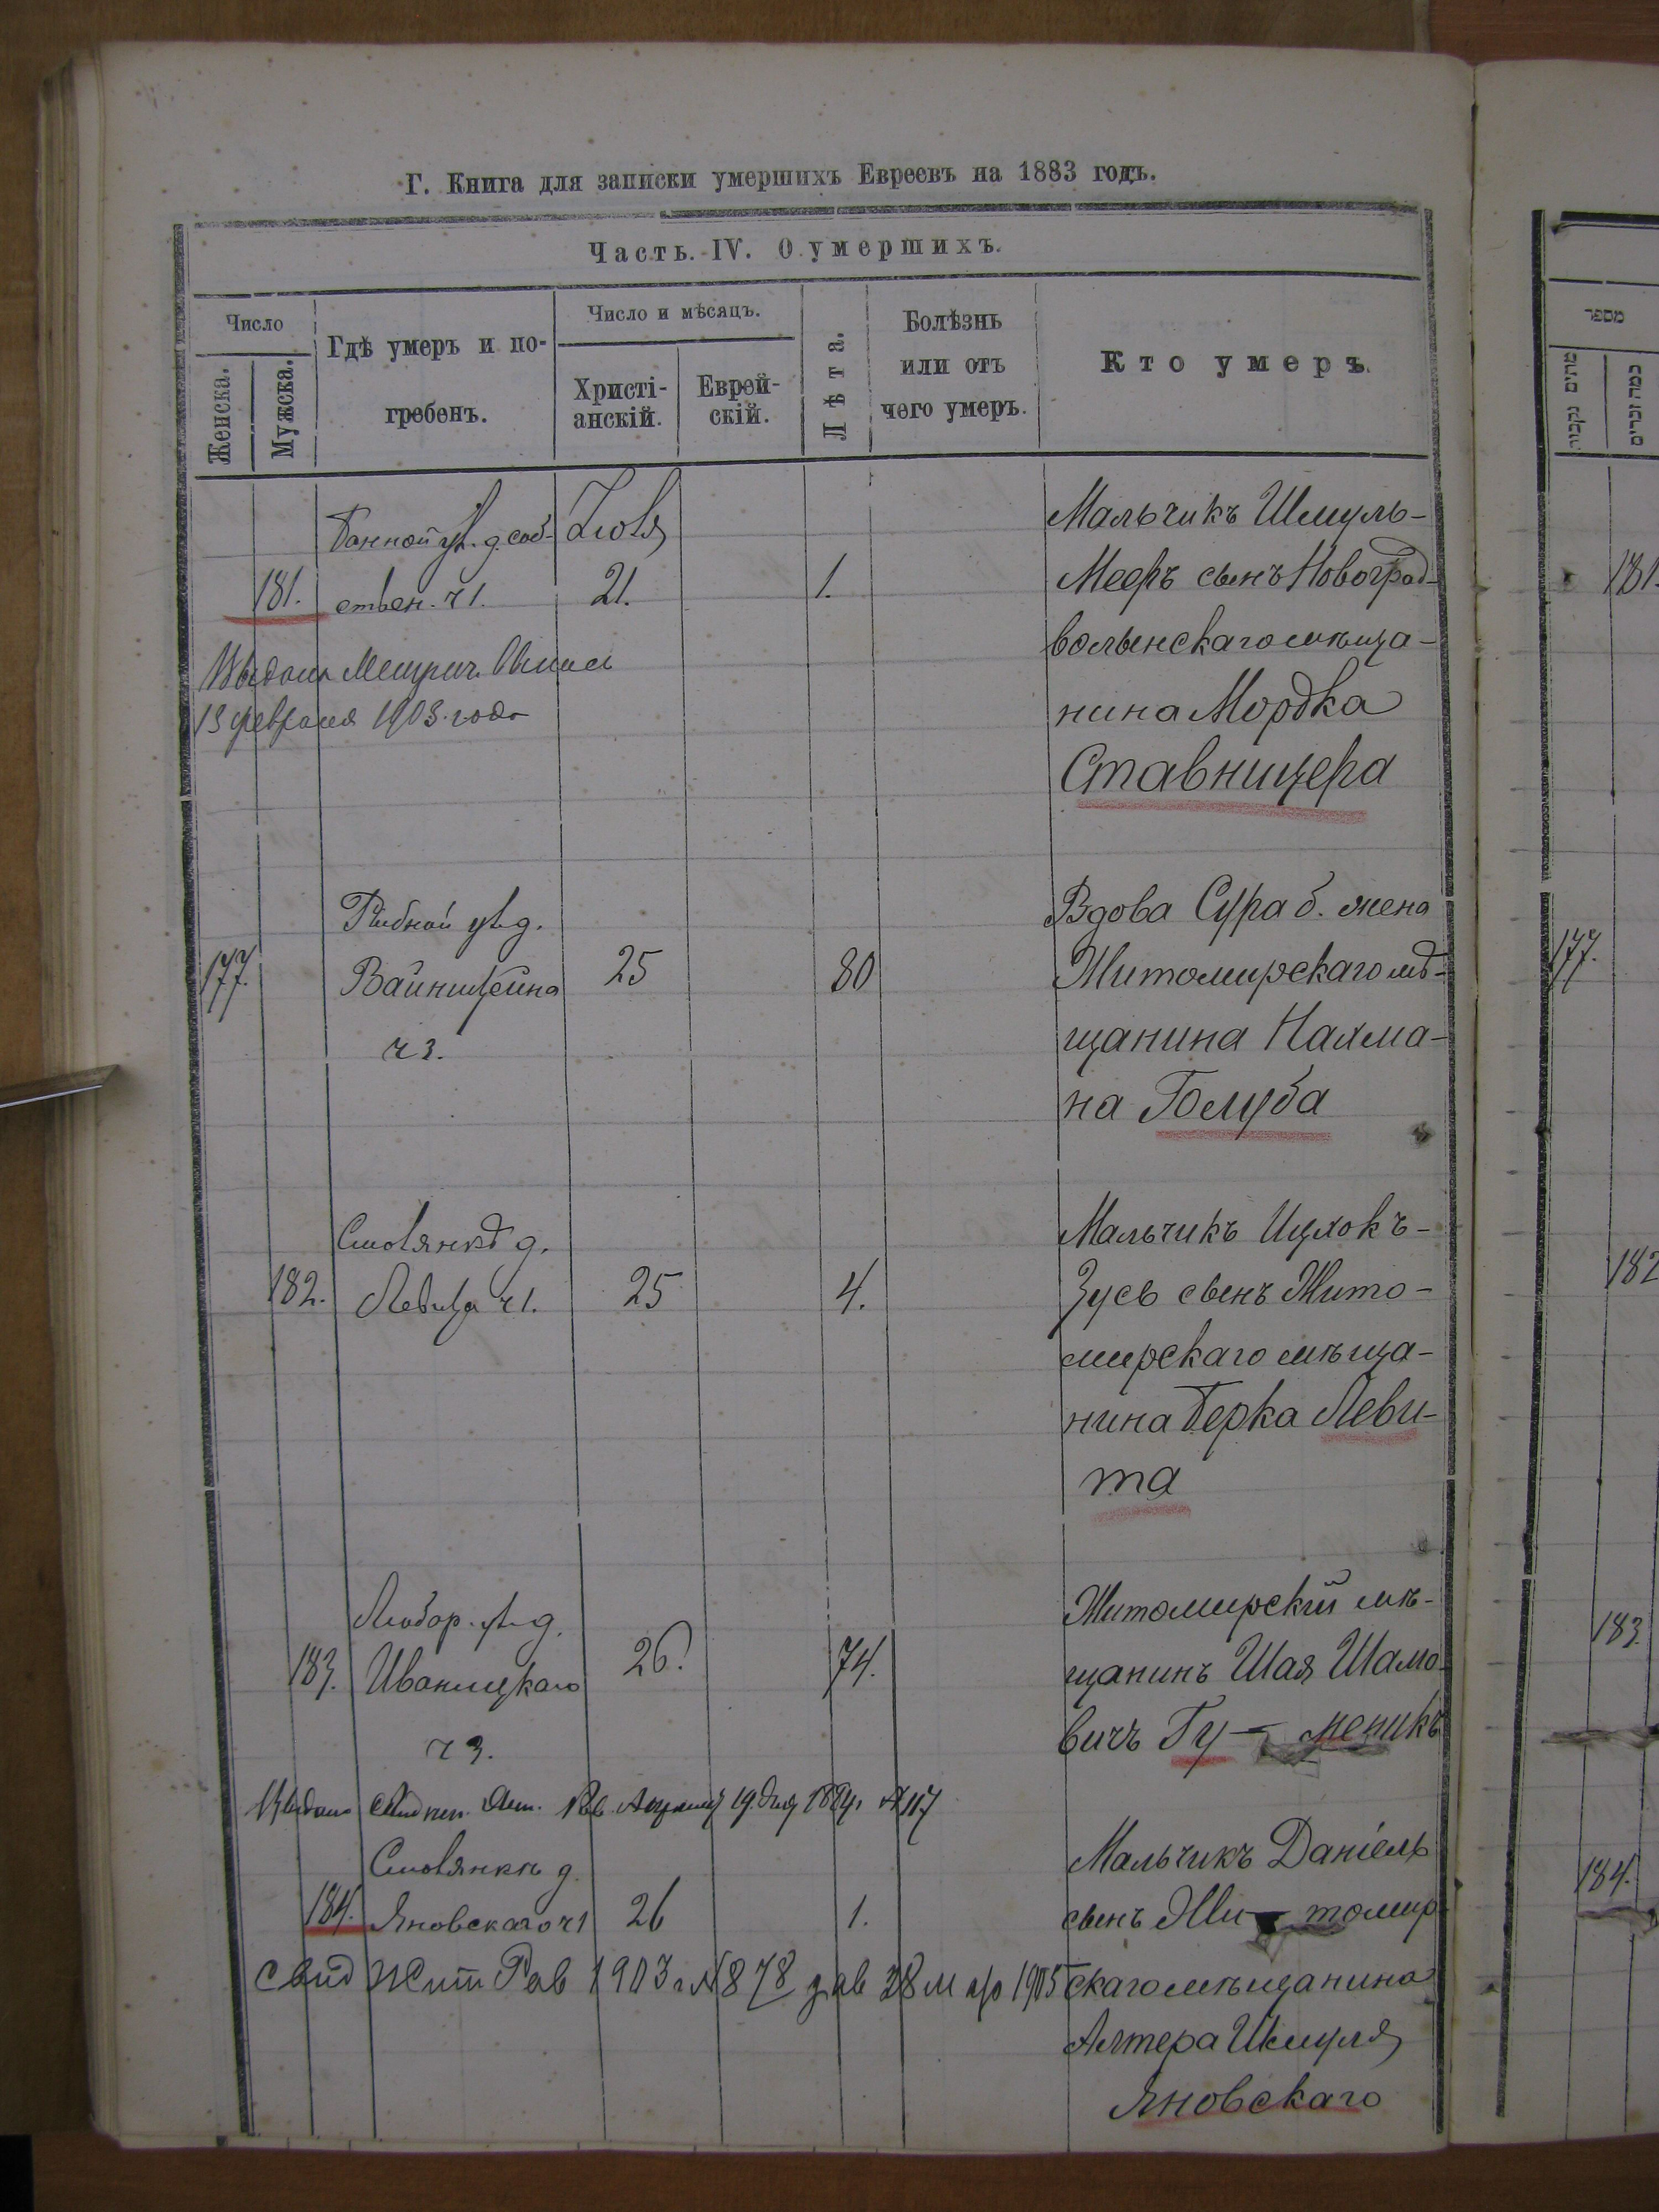 Г. Книга для записки умершихъ Евреевъ на 1883 годъ.
Часть. IV. О умершихъ.
Число
Женска.
Мужска.
Гдѣ умеръ и по-
гребенъ.
Число и мѣсяцъ.
Христі-
анскій.
Еврей-
скій.
Лѣта.
Болѣзнь
или отъ
чего умеръ.
Кто умеръ.
מספר
Банной ул. д. соб-
ствен. ч 1.
181.
Іюля
21.
1.
Мальчикъ Шмуль-
Мееръ сынъ Новоград-
волынскаго мѣща-
нина Мордка
Ставницера
Выдана Метрич.
13 февраля 1903 года
181.
177.
Рыбной ул. д.
Вайнштейна
ч 3.
25
80
Вдова Сура б. жена
Житомирскаго мѣ-
щанина Нахма-
на Голуба
177.
182.
Смолянкѣ д.
Левита ч 1.
25
4.
Мальчикъ Ицхокъ-
Зусь сынъ Жито-
мирскаго мѣща-
нина Берка Леви-
та
182
183.
Любар. ул. д.
Иваницкаго
ч 3.
26.
74.
Житомирскій мѣ-
щанинъ Шая Шамо-
вичъ Гу- меникъ
183.
Выдано 19. дня
Смолянкѣ д.
184.
Яновскаго ч 1
26
1.
Мальчикъ Даніель
сынъ Жи- томир-
скаго мѣщанина
Алтера Шмуля
Яновскаго
184.
Свид Жит Рав 1903 г № 878 1905